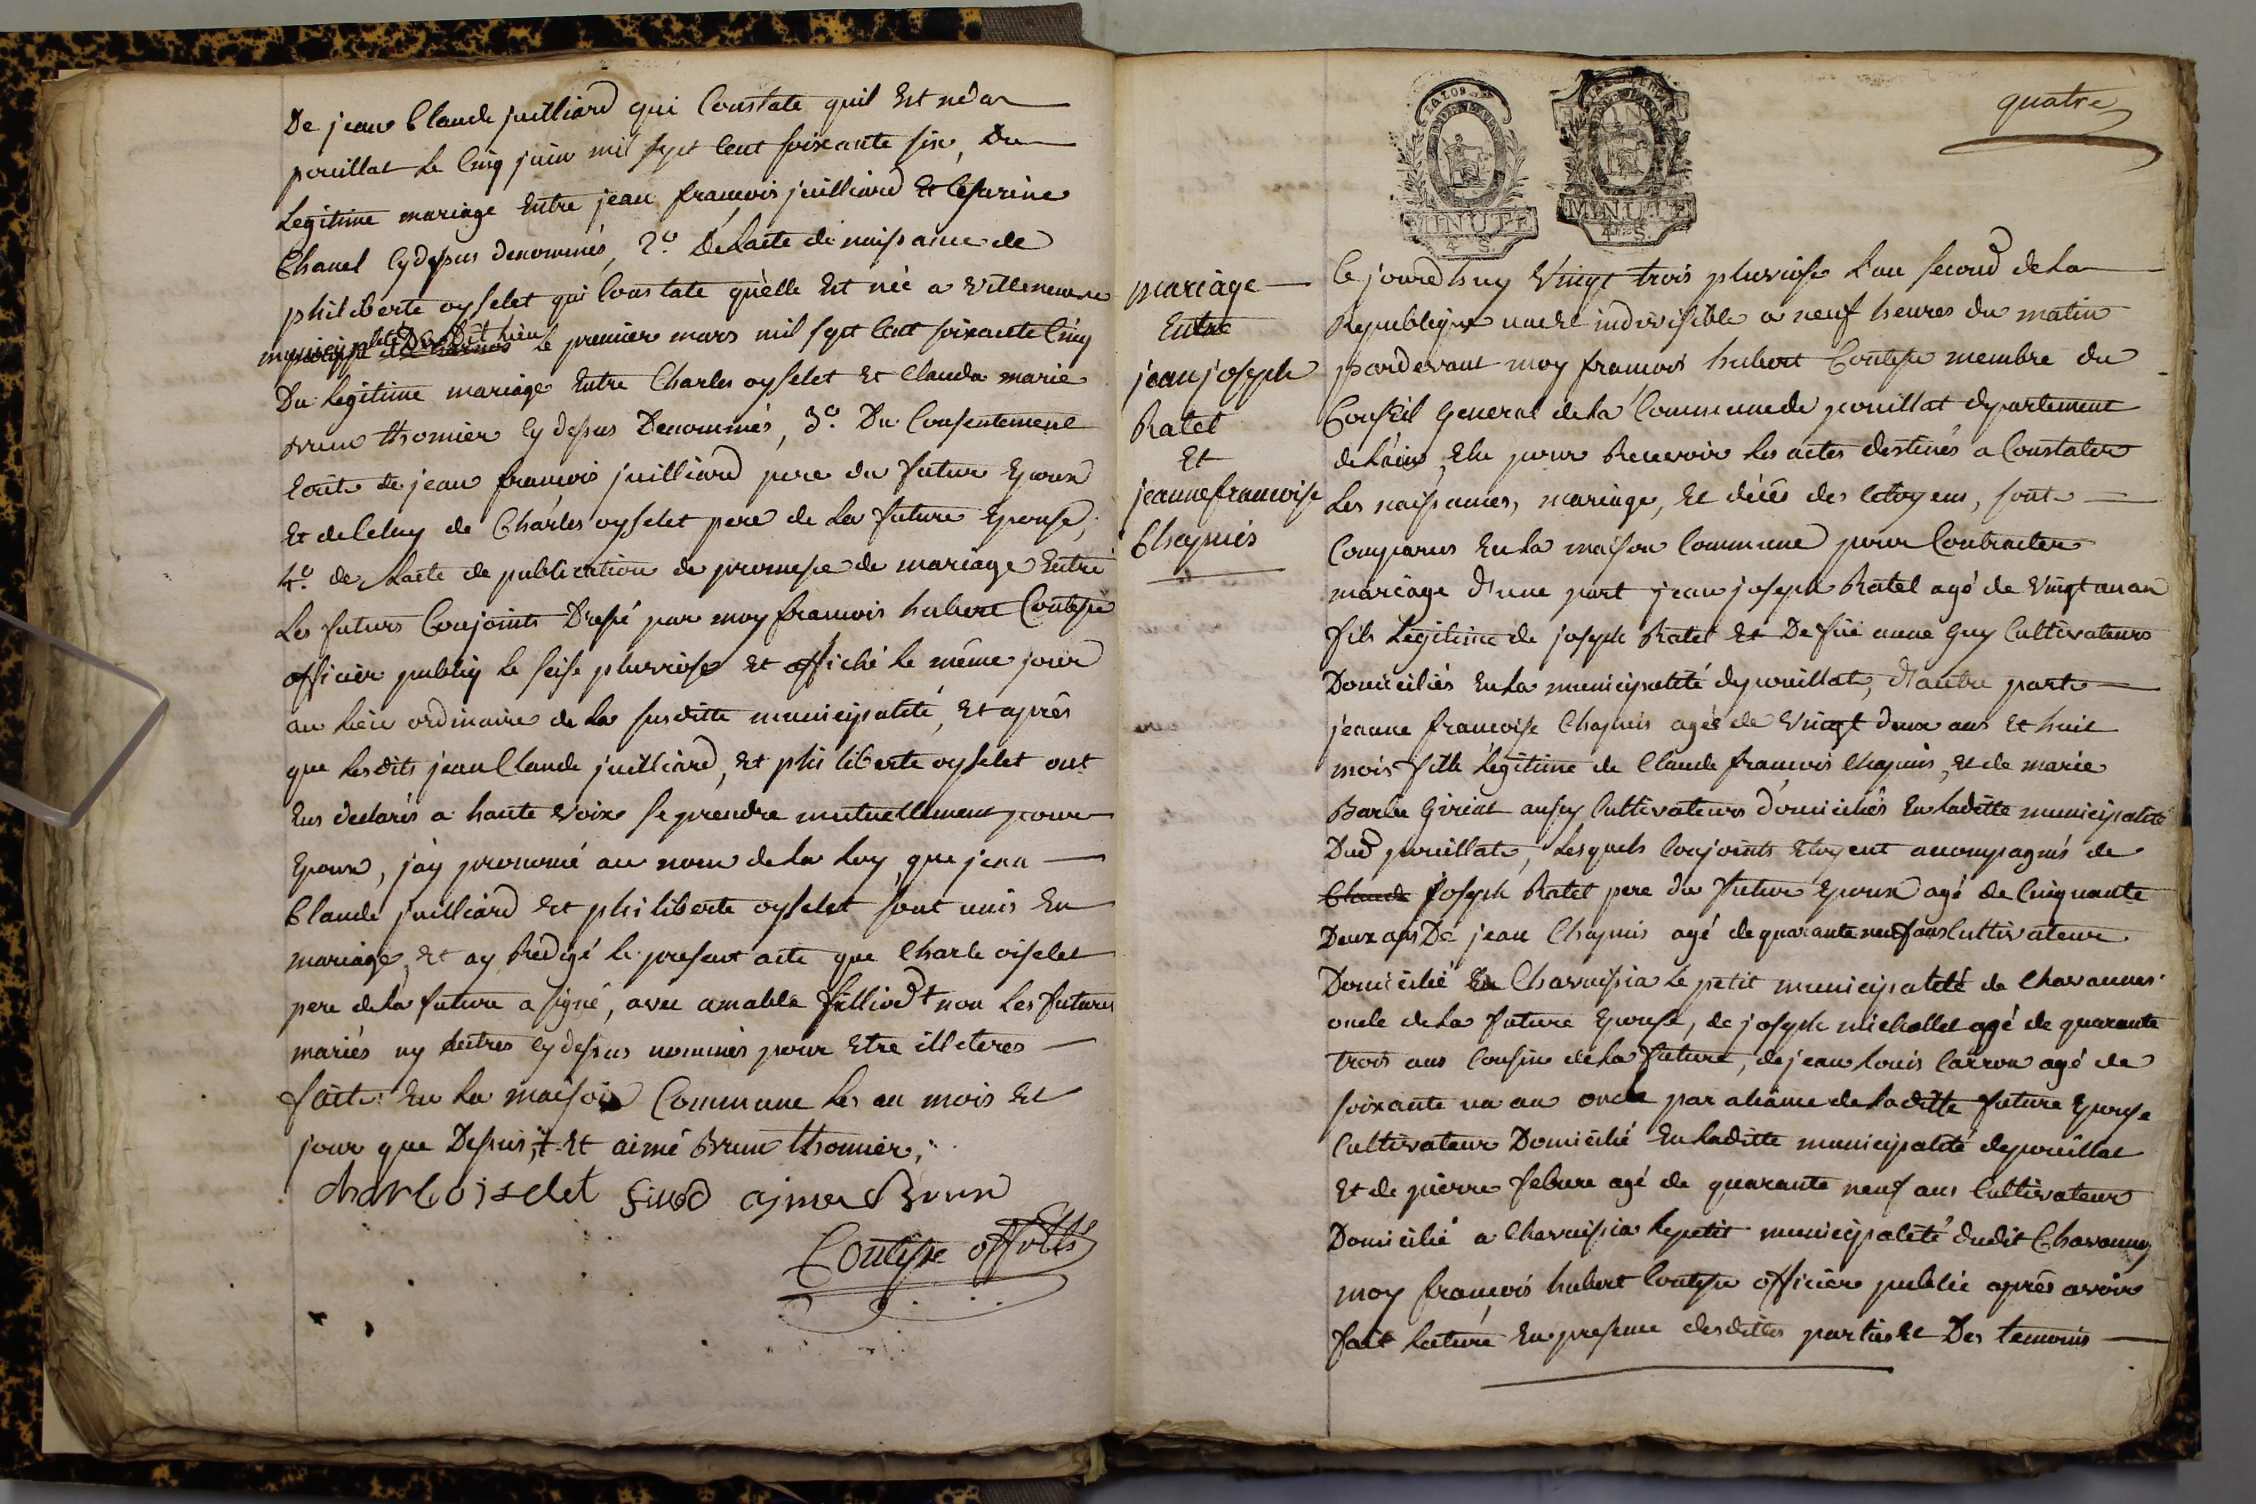 De jean Claude juilliard qui Constate quil Est né a
pouillat le Cinq juin mil sept Cent soixante six, Du
Legitime mariage Entre jean françois juilliard Et Cesarine
Chanel Cy dessus denommés, 2.o De Lacte de naissance de
philiberte oyselet qui Constate quèlle Est née a Villeneuve
municipalité Dudit lieu le premier mars mil sept Cent soixante Cinq
Du Legitime mariage Entre Charles oyselet Et Clauda marie
brun thomier Cy dessus Denommés, 3.o Du Consentement
Ecrite de jean françois juilliard pere du futur Epoux
Et de Celuy de Charles oyselet pere de La future Epouse,
4.o de Lacte de publication de promesse de mariage Entre
Les futurs Conjoints Dressé par moy francois hubert Contesse
officier publiq le seise pluviose Et affiché le même jour
au lieu ordinaire de la susditte municipalité, Et après
que lesdits jean Claude juilliard, Et philiberte oyselet ont
Eus declarés a haute Voix se prendre mutuellement pour
Epoux, j'ay prononcé au nom de La Loy, que jean
Claude juilliard Et philiberte oyselet sont unis En
mariage, Et ay Redigé le present acte que Charle oiselet
pere de la future a signé, avec amable filliod + non Les futurs
mariés ny Lautres Cy dessus nommés pour Etre illeteres
faite En La maison Commune les an mois Et
jour que Dessus, + Et aimé Brun thomier,
charle oiselet filiod aime Brun
Contesse off. pblic
quatre
MINUTE
4 S.
MINUTE
4 S.
mariage
Entre
jean joseph
Ratel
Et
jeanne francoise
Chapuis
Ce jourdhuy Vingt trois pluviose L'an second de La
Republique une Et indivisible a neuf heures du matin
pardevant moy francois hubert Contesse membre du
Conseil General de La Commune de pouillat departement
de L'ain, Elu pour Recevoir Les actes destinés a Constater
Les naissances, mariage, Et décès des Citoyens, sont
Comparus En La maison Commune pour Contracter
mariage d'une part jean joseph Ratel agé de Vingt un an
fils Legitime de joseph Ratel Et De fue anne Guy Cultivateurs
Domiciliés En La municipalité de pouillat, d'autre part
jeanne francoise Chapuis agée de Vingt deux ans Et huit
mois fille Legitime de Claude françois Chapuis, Et de marie
Barbe Giriat aussy Cultivateurs domiciliés En laditte municipalité
Dud pouillat, Lesquels Conjoints Etoyent accompagnés de
Claude joseph Ratel pere du futur Epoux agé de Cinquante
Deux ans De jean Chapuis agé de quarante neuf ans Cultivateur
Domicilié En Charnisia Le petit municipalité de Chavannes
oncle de La future Epouse, de joseph michallet agé de quarante
trois ans Cousin de La future, de jean Louis Carron agé de
soixante un an oncle par aliâme de Laditte future Epouse
Cultivateur Domicilié En Laditte municipalité de pouillat
Et de pierre febure agé de quarante neuf ans Cultivateur
Domicilié a Charnisia le petit municipalité dudit Chavannes
moy françois hubert Contesse officier public après avoir
fait Lecture En presence desdittes parties Et Des temoins